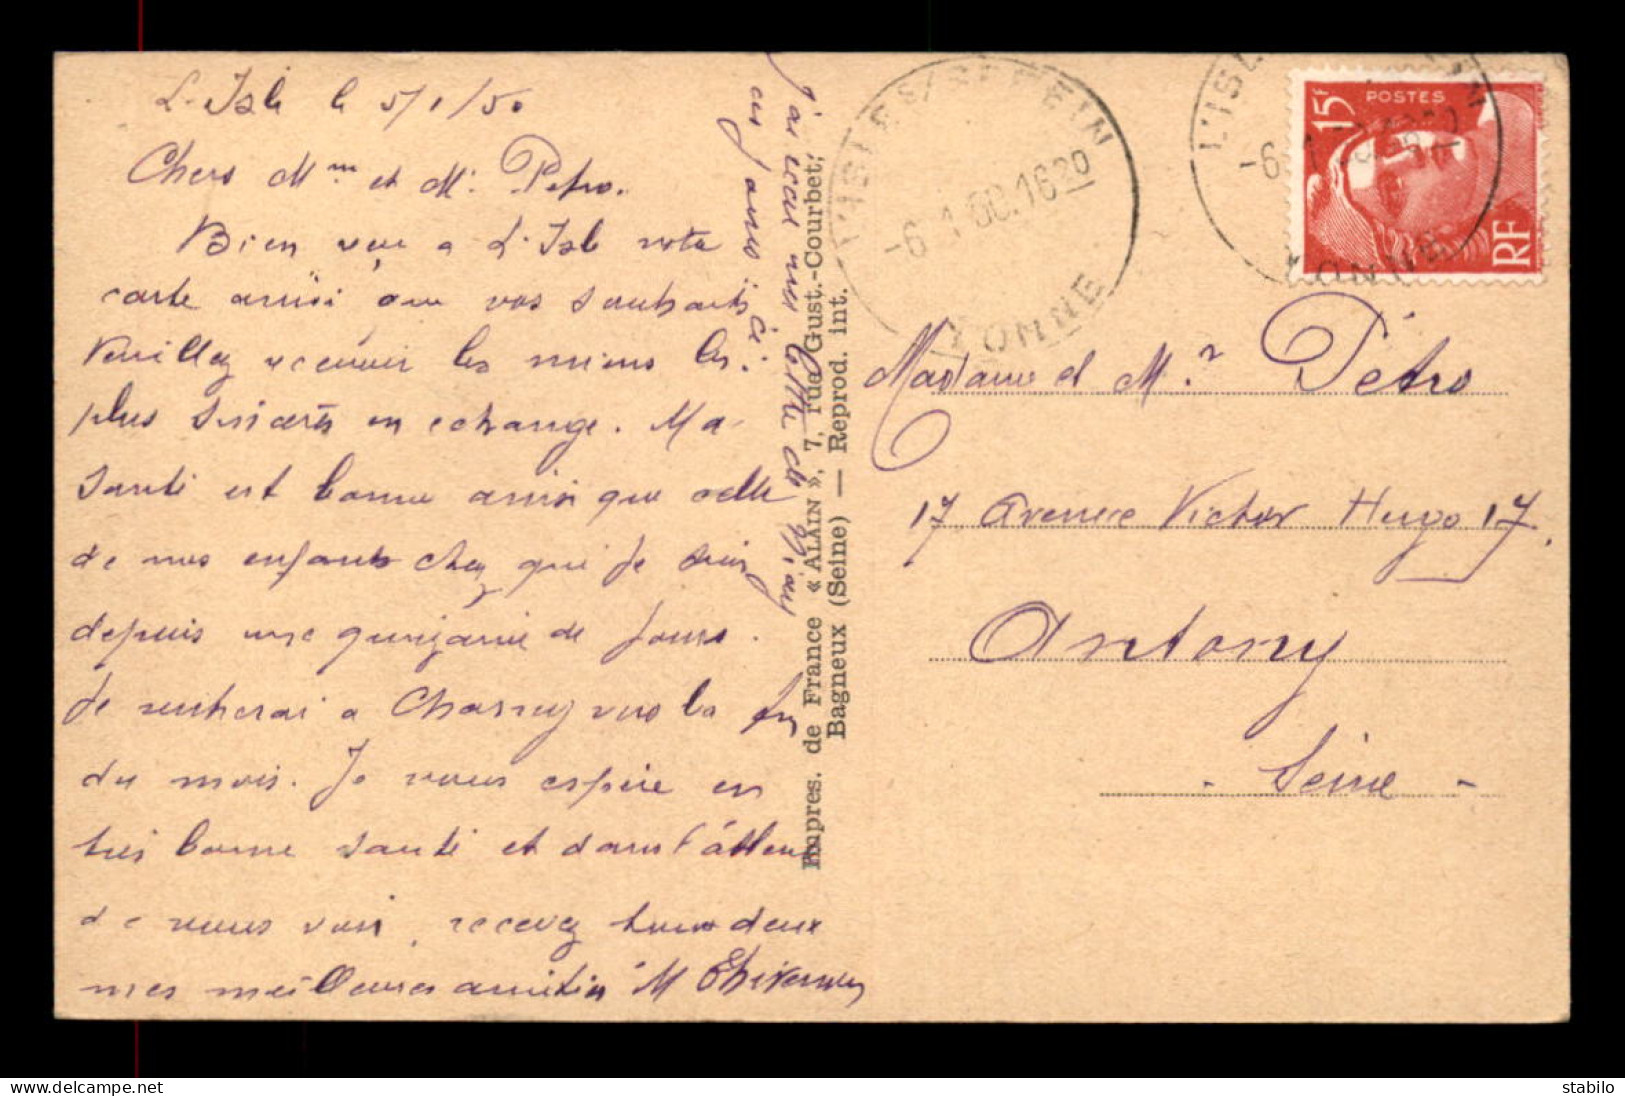 L'Isle le 5/1/50
Chers Mme et Mr Petro.
Bien reçu a L'Isle votre
carte ainsi que vos souhaits
Veuillez recevoir les miens les
plus sincères en echange. Ma
santé est bonne ainsi que celle
de mes enfants chez qui je suis
depuis une quinzaine de jours.
Je rentrerai a Charny vers la fin
du mois. Je vous espère en
très bonne santé et dans l'attente
de vous voir, recevez tous deux
mes meilleures amitiés M
J'ai reçu une lettre de
ces jours ici
Impres. de France « ALAIN », 7, rue Gust.-Courbet,
Bagneux (Seine) — Reprod. int.
L'ISLE S/SEREIN
-6 -1 50.1630
YONNE
L'ISLE
-6
YONNE
POSTES
15F
RF
Madame et Mr Pétro
17 Avenue Victor Hugo 17.
Antony
- Seine -
stabilo